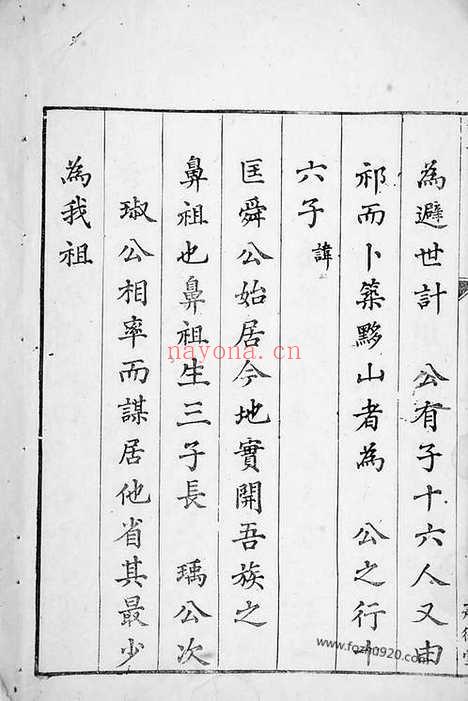 為避世計　公有子十六人又由
祁而卜築黟山者為　公之行十
六子諱
匡舜公始居今地實開吾族之
鼻祖也鼻祖生三子長　瑀公次
琡公相率而謀居他省其最少
為我祖
nayona.cn
www.fozhu920.com